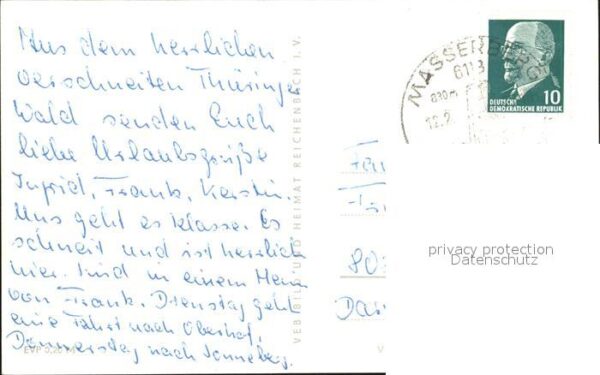 Aus dem herrlichen
verschneiten Thüringer
Wald senden Euch
liebe Urlaubsgrüße
Ingrid, Frank, Kerstin.
Uns geht es klasse. Es
schneit und ist herrlich
hier. Sind in einem Heim
von Frank. Dienstag geht
eine Fahrt nach Oberhof,
Donnerstag nach Sonneberg.
EVP 0,20 M
VEB BILD UND HEIMAT REICHENBACH I. V.
V
MASSERBERG
6113
830m
10
DEUTSCHE
DEMOKRATISCHE REPUBLIK
80
privacy protection
Datenschutz